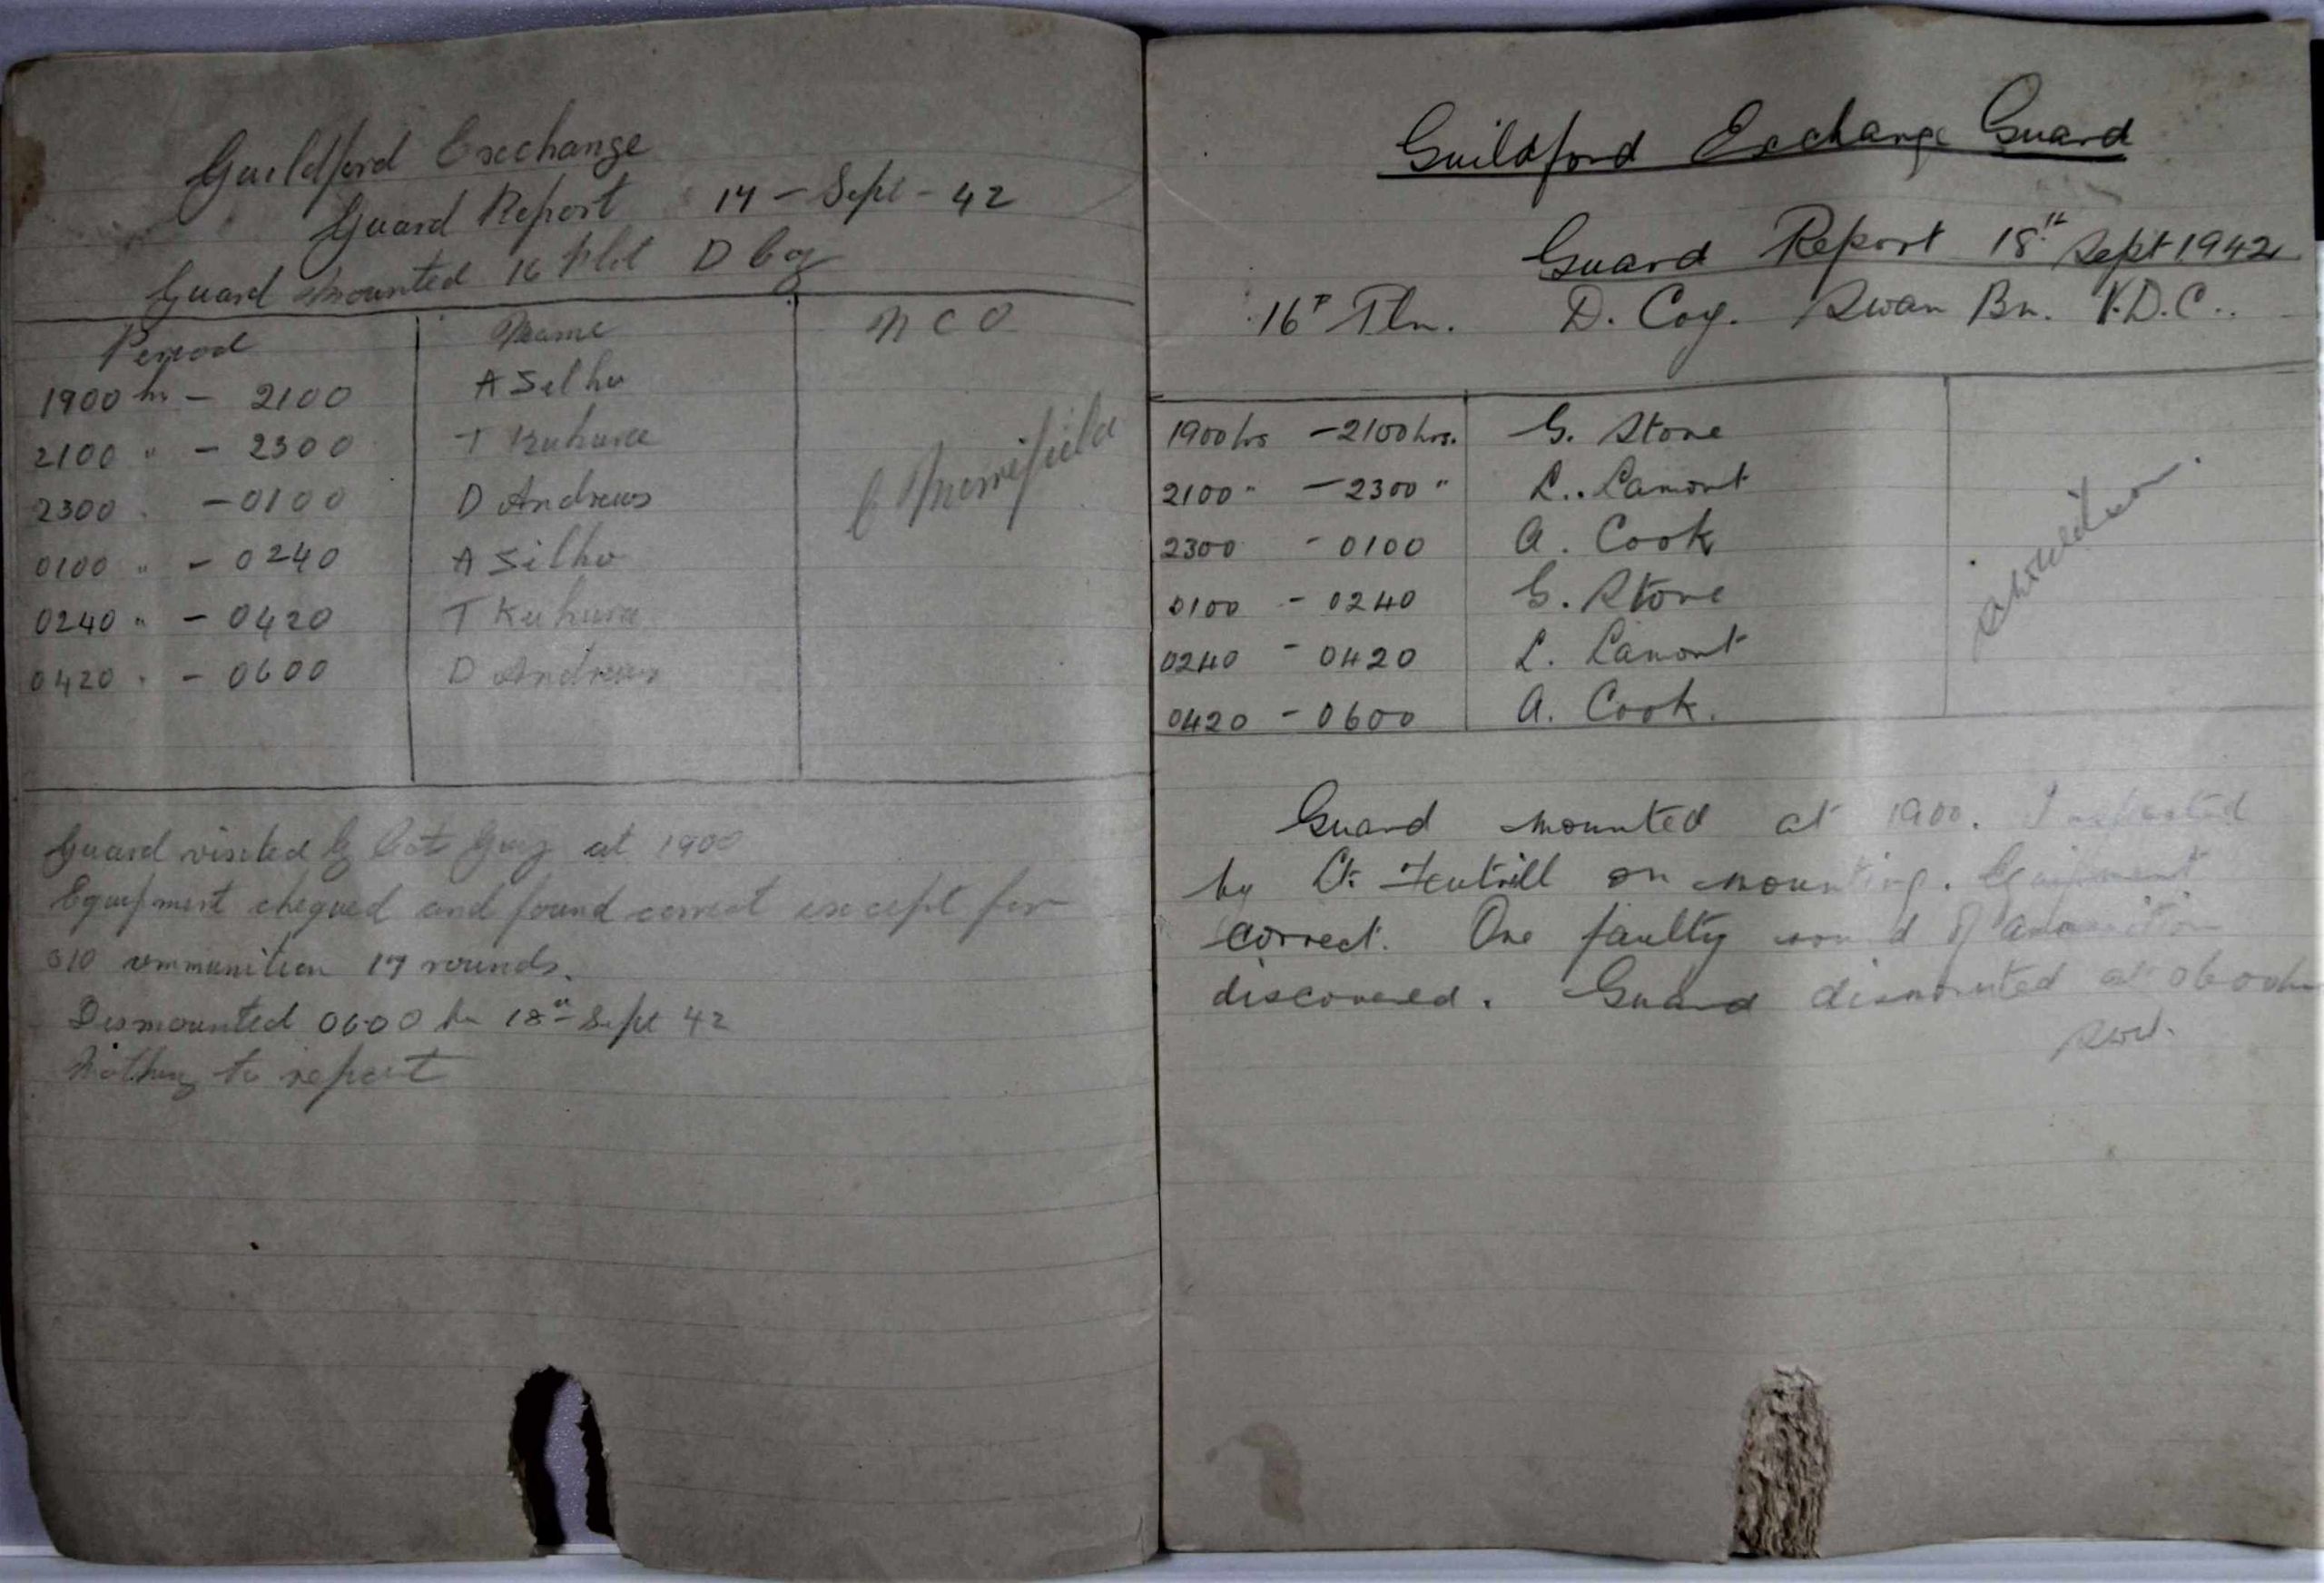 Guildford Exchange
Guard Report 17 - Sept - 42
Guard Mounted 16 Plt D Coy
Period Name NCO
1900 hr - 2100 A Silho
2100 " - 2300 T
2300 - 0100 D Andrews
0100 " - 0240 A Silho
0240 " - 0420 T
0420 " - 0600 D Andrews
C Merrifield
Guard visited by at 1900
Equipment chequed and found correct except for
310 ammunition 17 rounds.
Dismounted 0600 hr 18th Sept 42
Nothing to report
Guildford Exchange Guard
Guard Report 18th Sept 1942
16 Pln. D. Coy. Swan Bn. V.D.C..
1900 hrs - 2100 hrs. G. Stone
2100 " - 2300 " L. Lamont
2300 - 0100 A. Cook
0100 - 0240 G. Stone
0240 - 0420 L. Lamont
0420 - 0600 A. Cook.
Guard mounted at 1900. Inspected
by Lt. on mounting. Equipment
correct. One faulty round of ammunition
discovered. Guard dismounted at 0600 hr